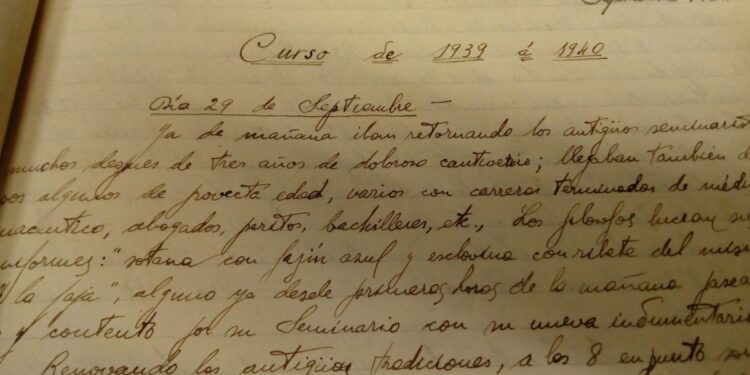 Curso de 1939 á 1940
Día 29 de Septiembre —
Ya de mañana iban retornando los antigüos seminarist
muchos despues de tres años de doloroso cautiverio; llegaban tambien
vos algunos de provecta edad, varios con carreras terminadas de médi
macéutico, abogados, peritos, bachilleres, etc., Los filosofos lucian su
uniformes: "sotana con fajín azul y esclavina con ribete del mis
la faja", alguno ya desde primeras horas de la mañana pasea
y contento por su Seminario con su nueva indumentaria
Renovando las antigüas tradiciones, a las 8 en punto son